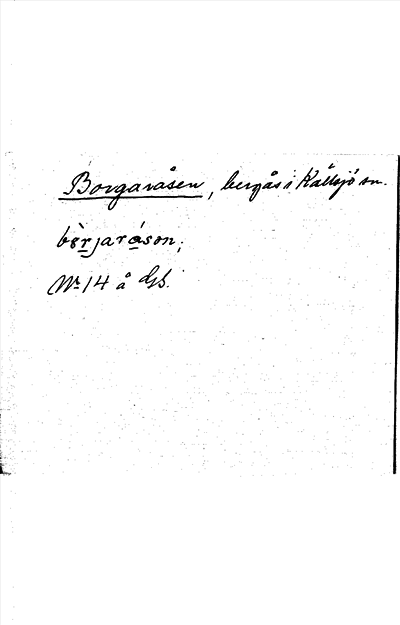 Borgaråsen, bergås i Källsjö sn.
bèrjaråson;
No 14 å Gs.